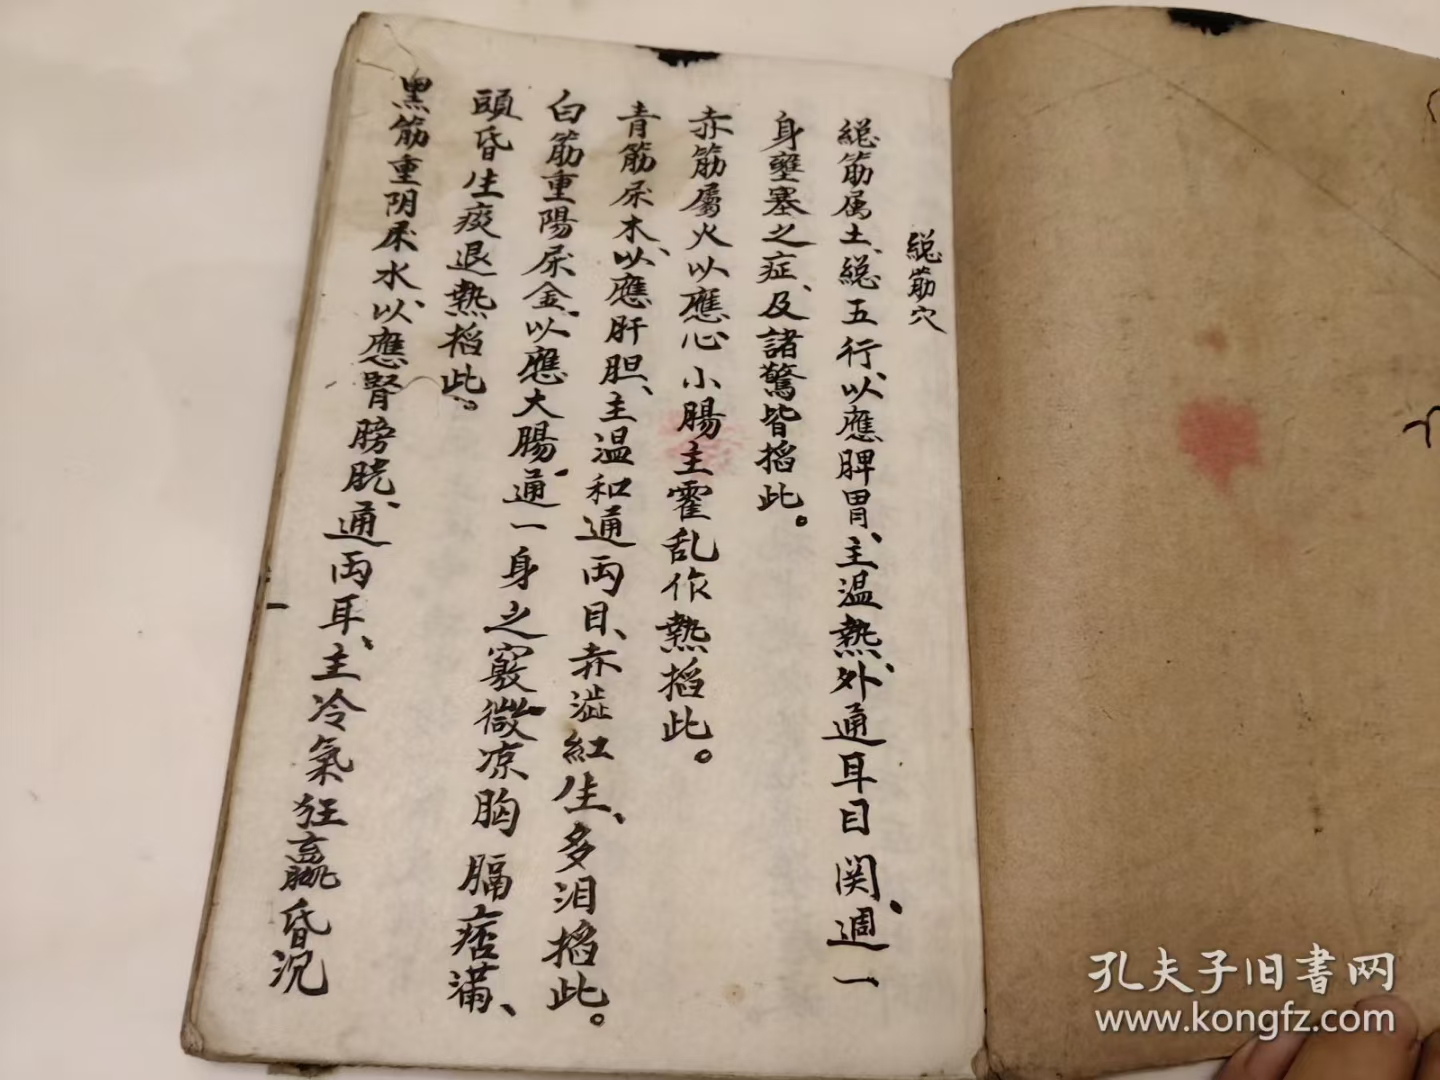 總筋穴
總筋属土、總五行、以應脾胃、主温熱、外通耳目関、週一
身壅塞之症、及諸驚皆掐此。
赤筋屬火以應心小腸主霍乱作熱掐此。
青筋属木、以應肝胆、主温和通两目、赤澁紅生、多泪掐此。
白筋重陽属金、以應大腸、通一身之竅微凉胸膈痞滿、
頭昏生痰退熱掐此。
黑筋重阴属水、以應腎膀胱、通两耳、主冷氣狂羸昏沉
孔夫子旧書网
www.kongfz.com